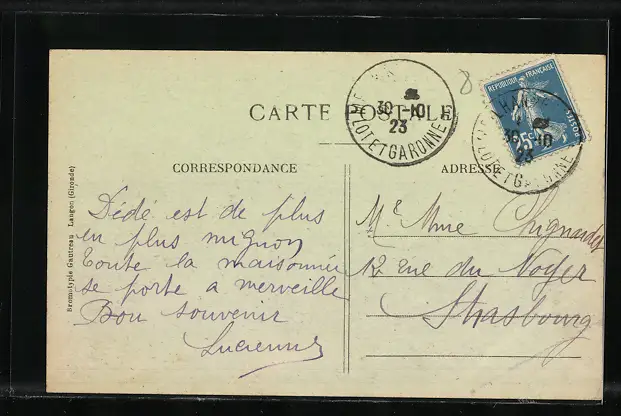 CARTE POSTALE
CORRESPONDANCE
ADRESSE
Dédé est de plus
en plus mignon
Toute la maisonnée
se porte a merveille
Bon souvenir
Lucienne
Mr Mme Chignardet
12 rue du Noyer
Strasbourg
Bromotypie Gautreau Langon (Gironde)
30 -10
23
LOT ET GARONNE
REPUBLIQUE FRANÇAISE
POSTES
25c
30 -10
23
8